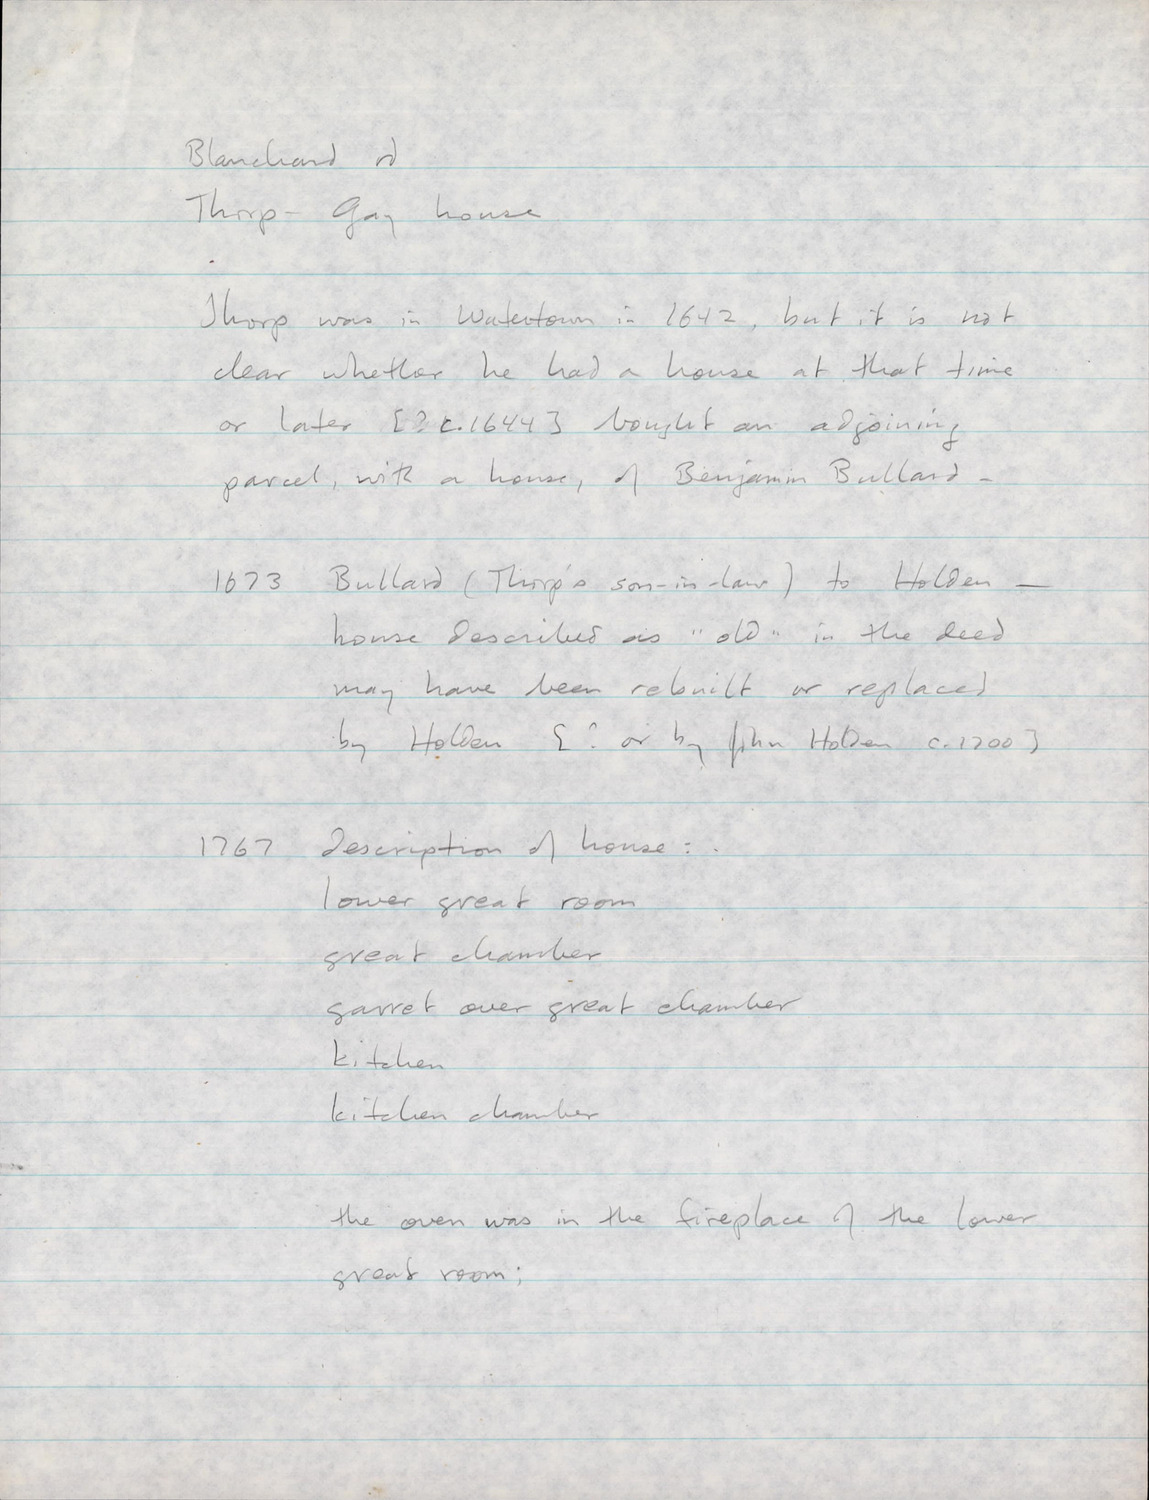 Blanchard rd
Thorp - Gay house
Thorp was in Watertown in 1642, but it is not
clear whether he had a house at that time
or later [? c.1644] bought an adjoining
parcel, with a house, of Benjamin Bullard -
1673 Bullard (Thorp's son-in-law) to Holden —
house described as "old" in the deed
may have been rebuilt or replaced
by Holden [? or by John Holden c.1700]
1767 description of house:
lower great room
great chamber
garret over great chamber
kitchen
kitchen chamber
the oven was in the fireplace of the lower
great room;